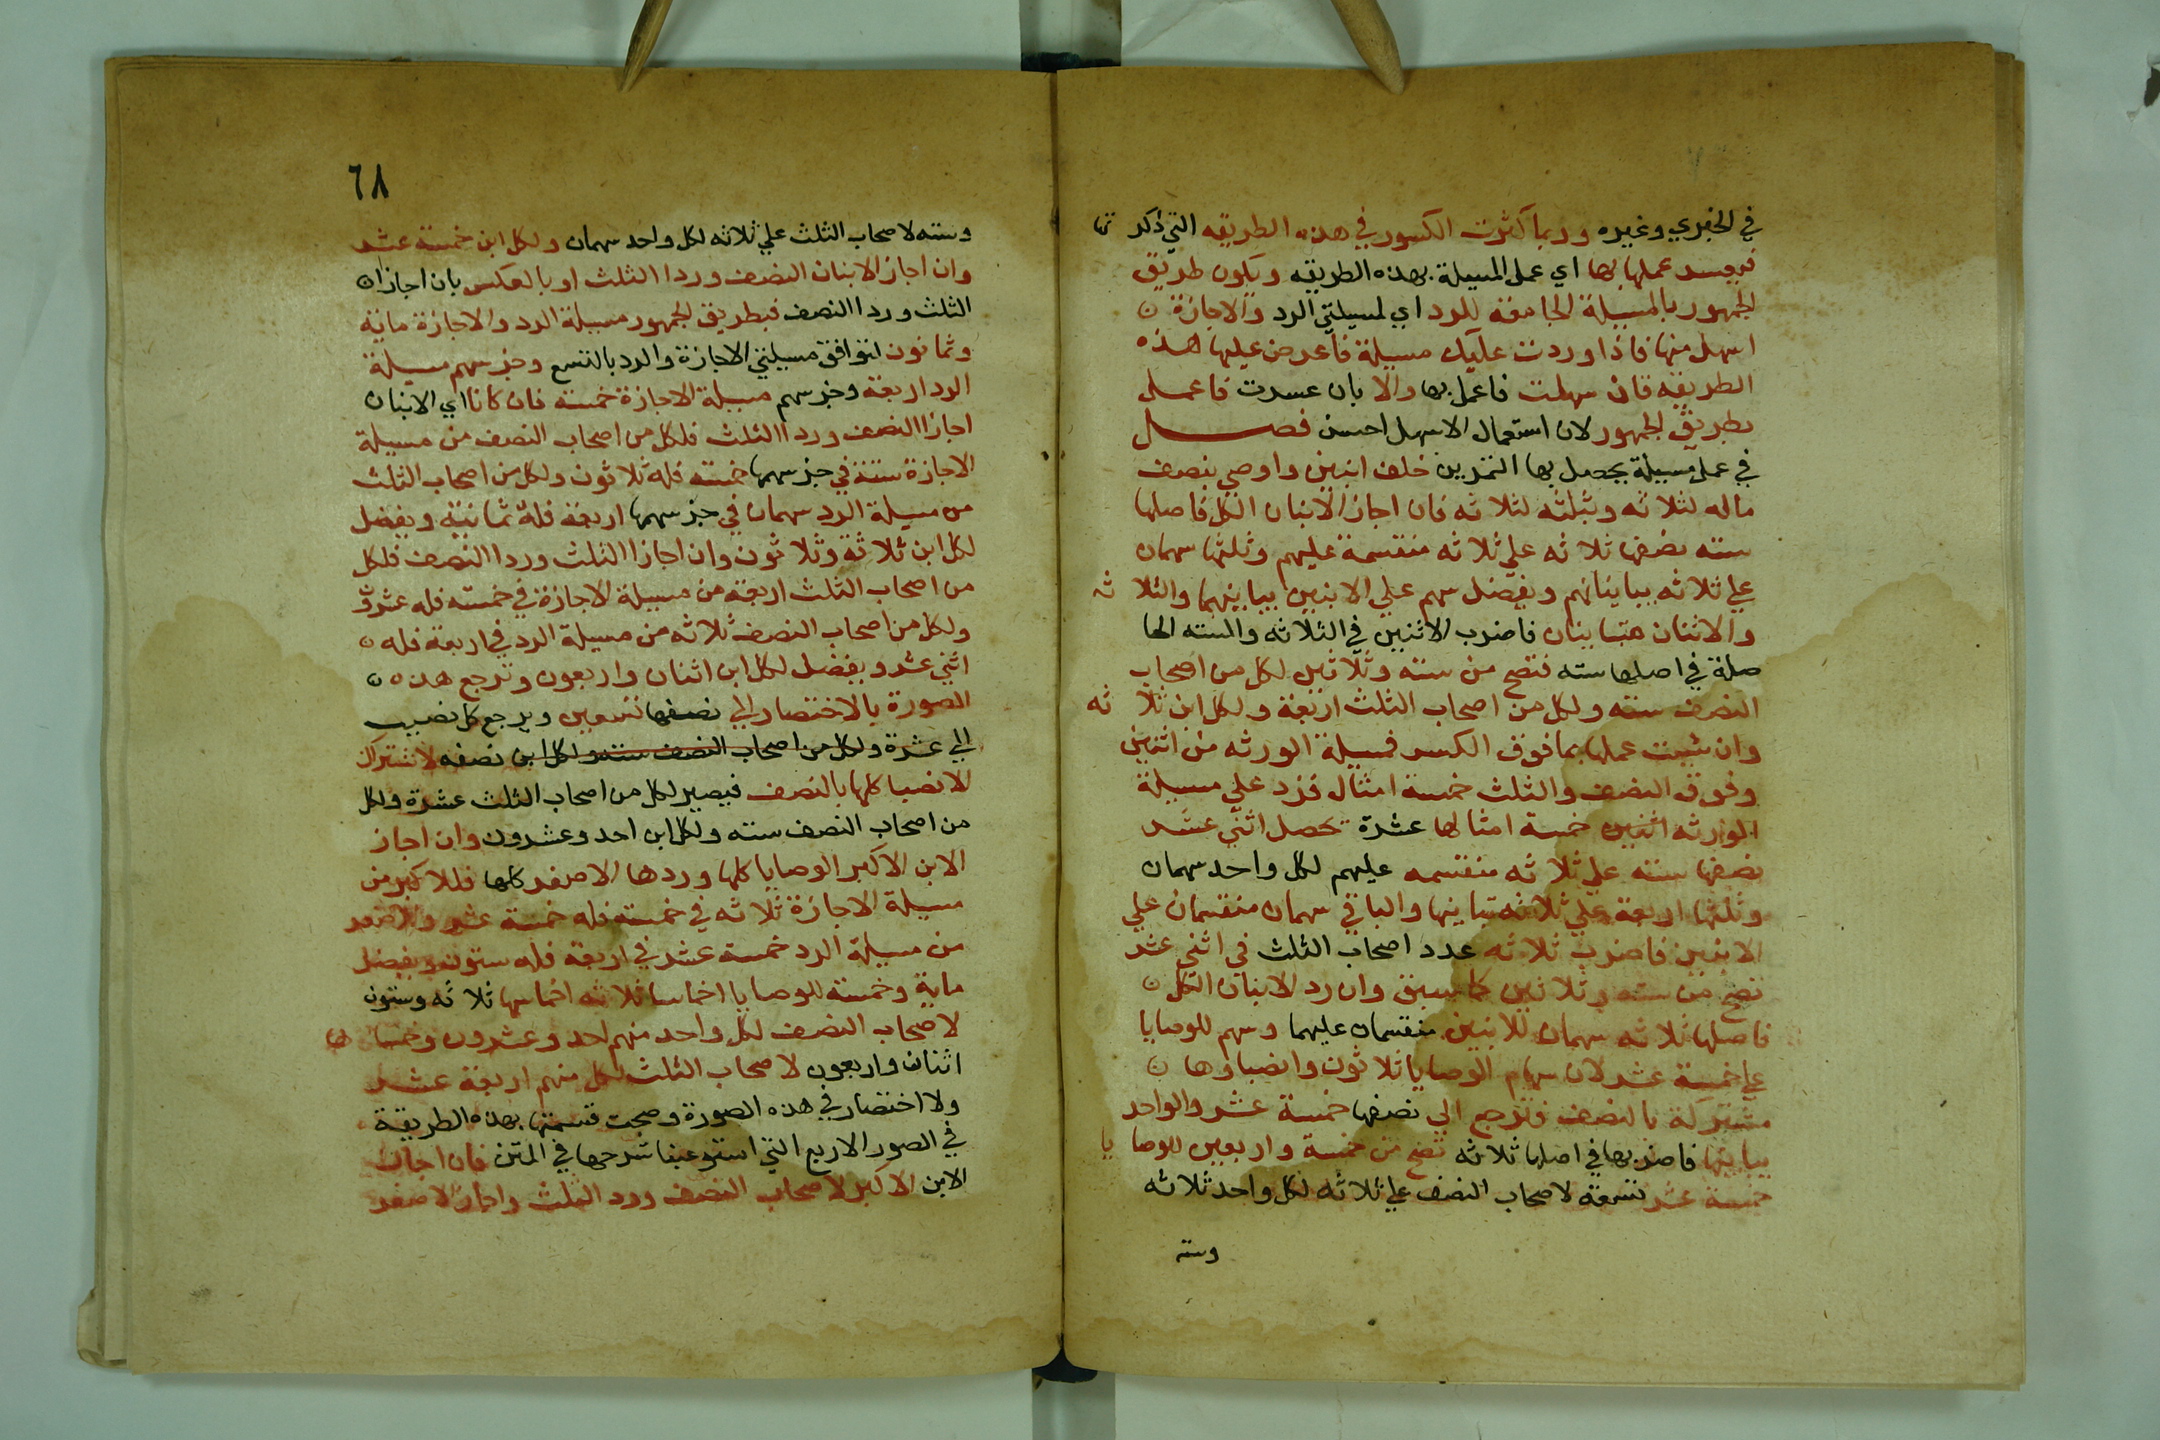 في الخبري وغيره وربما كثرت الكسور في هذه الطريقه التي ذكر تها
فيعسر عملها بها اي عمل المسيلة بهذه الطريقه ويكون طريق
الجمهور بالمسيلة الجامعة للرد اي لمسيلتي الرد والاجازة
اسهل منها فاذا وردت عليك مسيلة فاعرض عليها هذه
الطريقه فان سهلت فاعمل بها والا بان عسرت فاعمل
بطريق الجمهور لان استعمال الاسهل احسن فصل
في عمل مسيلة يحصل بها التمرين خلف ابنين واوصي بنصف
ماله لثلاثه وبثلثه لثلاثه فان اجاز الابنان الكل فاصلها
سته نصفها ثلاثه علي ثلاثه منقسمة عليهم وثلثها سهمان
علي ثلاثه يباينانهم ويفضل سهم علي الابنين يباينهما والثلا ثه
والاثنان متباينان فاضرب الاثنين في الثلاثه والسته الحا
صلة في اصلها سته فتصح من سته وثلاثين لكل من اصحاب
النصف سته ولكل من اصحاب الثلث اربعة ولكل ابن ثلا ثه
وان شيت عملها بما فوق الكسر فمسيلة الورثه من اثنين
وفوق النصف والثلث خمسة امثال فزد علي مسيلة
الورثه اثنين خمسة امثالها عشرة تحصل اثني عشر
نصفها سته علي ثلاثه منقسمه عليهم لكل واحد سهمان
وثلثها اربعة علي ثلاثه تباينها والباقي سهمان منقسمان علي
الابنين فاضرب ثلاثه عدد اصحاب الثلث في اثني عشر
تصح من سته وثلاثين كما سبق وان رد الابنان الكل
فاصلها ثلاثه سهمان للابنين منقسمان عليهما وسهم للوصايا
علي خمسة عشر لان سهام الوصايا ثلاثون وانصباوها
مشتركة بالنصف فترجع الي نصفها خمسة عشر والواحد
يباينها فاضربها في اصلها ثلاثه تصح من خمسة واربعين للوصا يا
خمسة عشر تسعة لاصحاب النصف علي ثلاثه لكل واحد ثلاثه
وسته
٦٨
وسته لاصحاب الثلث علي ثلاثه لكل واحد سهمان ولكل ابن خمسة عشر
وان اجاز الابنان النصف وردا الثلث او بالعكس بان اجازا
الثلث وردا النصف فبطريق الجمهور مسيلة الرد والاجازة ماية
وثمانون لتوافق مسيلتي الاجازة والرد بالتسع وجز سهم مسيلة
الرد اربعة وجز سهم مسيلة الاجازة خمسه فان كانا اي الابنان
اجازا النصف وردا الثلث فلكل من اصحاب النصف من مسيلة
الاجازة ستة في جز سهمها خمسه فله ثلاثون ولكل من اصحاب الثلث
من مسيلة الرد سهمان في جز سهمها اربعة فله ثمانية ويفضل
لكل ابن ثلاثة وثلاثون وان اجازا الثلث وردا النصف فلكل
من اصحاب الثلث اربعة من مسيلة الاجازة في خمسه فله عشرون
ولكل من اصحاب النصف ثلاثه من مسيلة الرد في اربعة فله
اثني عشر ويفضل لكل ابن اثنان واربعون وترجع هذه
الصورة بالاختصار الي نصفها تسعين ويرجع كل نصيب
الي عشرة ولكل من اصحاب النصف سته ولكل ابن نصفه لاشتراك
الانصبا كلها بالنصف فيصير لكل من اصحاب الثلث عشرة ولكل
من اصحاب النصف سته ولكل ابن احد وعشرون وان اجاز
الابن الاكبر الوصايا كلها وردها الاصغر كلها فللاكبر من
مسيلة الاجازة ثلاثه في خمسه فله خمسة عشر وللاصغر
من مسيلة الرد خمسة عشر في اربعة فله ستون ويفضل
ماية وخمسه للوصايا اخماسا ثلاثه اخماسها ثلاثه وستون
لاصحاب النصف لكل واحد منهم احد وعشرون وخمسا ها
اثنان واربعون لاصحاب الثلث لكل منهم اربعة عشر
ولا اختصار في هذه الصورة وصحت قسمتها بهذه الطريقة
في الصور الاربع التي استوعبنا شرحها في المتن فان اجاز
الابن الاكبر لاصحاب النصف ورد الثلث واجاز الاصغر